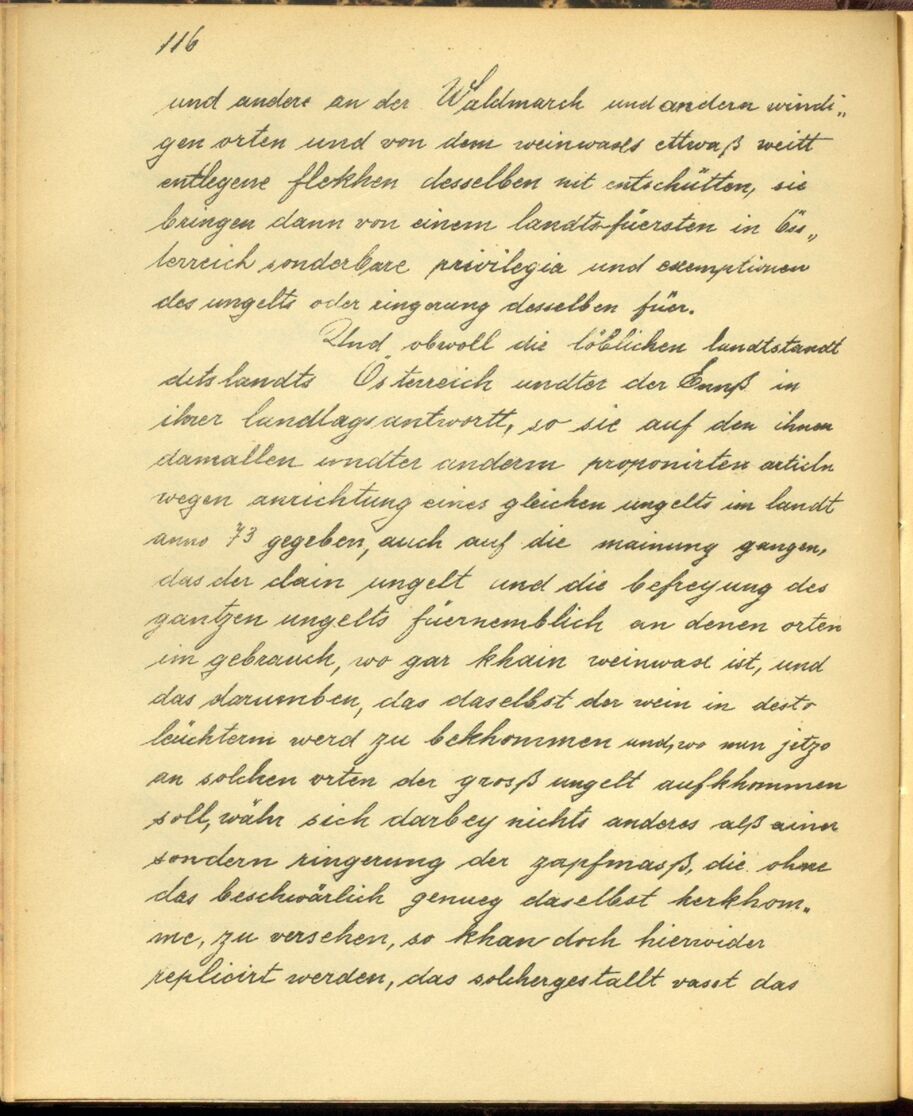 116
und andere an der Waldmarch und andern windi„
gen orten und von dem weinwachs ettwaß weitt
entlegene flekhen desselben nit entschütten, sie
bringen dann von einem landtsfüersten in Ös„
terreich sonderbare privilegia und exemptionen
des ungelts oder ringerung desselben für.
Und obwoll die löblichen landtstandt
dits landts Österreich undter der Ennß in
ihrer landtagsantwortt, so sie auf den ihnen
damallen undter anderm proponirten articln
wegen anrichtung eines gleichen ungelts im landt
anno 73 gegeben, auch auf die mainung gangen,
das der clain ungelt und die befreyung des
gantzen ungelts füernemblich an denen orten
im gebrauch, wo gar khain weinwax ist, und
das darumben, das daselbst der wein in desto
leüchterm werd zu bekhommen und, wo nun jetzo
an solchen orten der grosß ungelt aufkhommen
soll, währ sich darbey nichts anderes alß einer
sondern ringerung der zapfmasß, die ohne
das beschwärlich genueg daselbst herkhom„
me, zu versehen, so khan doch hierwider
replicirt werden, das solchergestallt vasst das